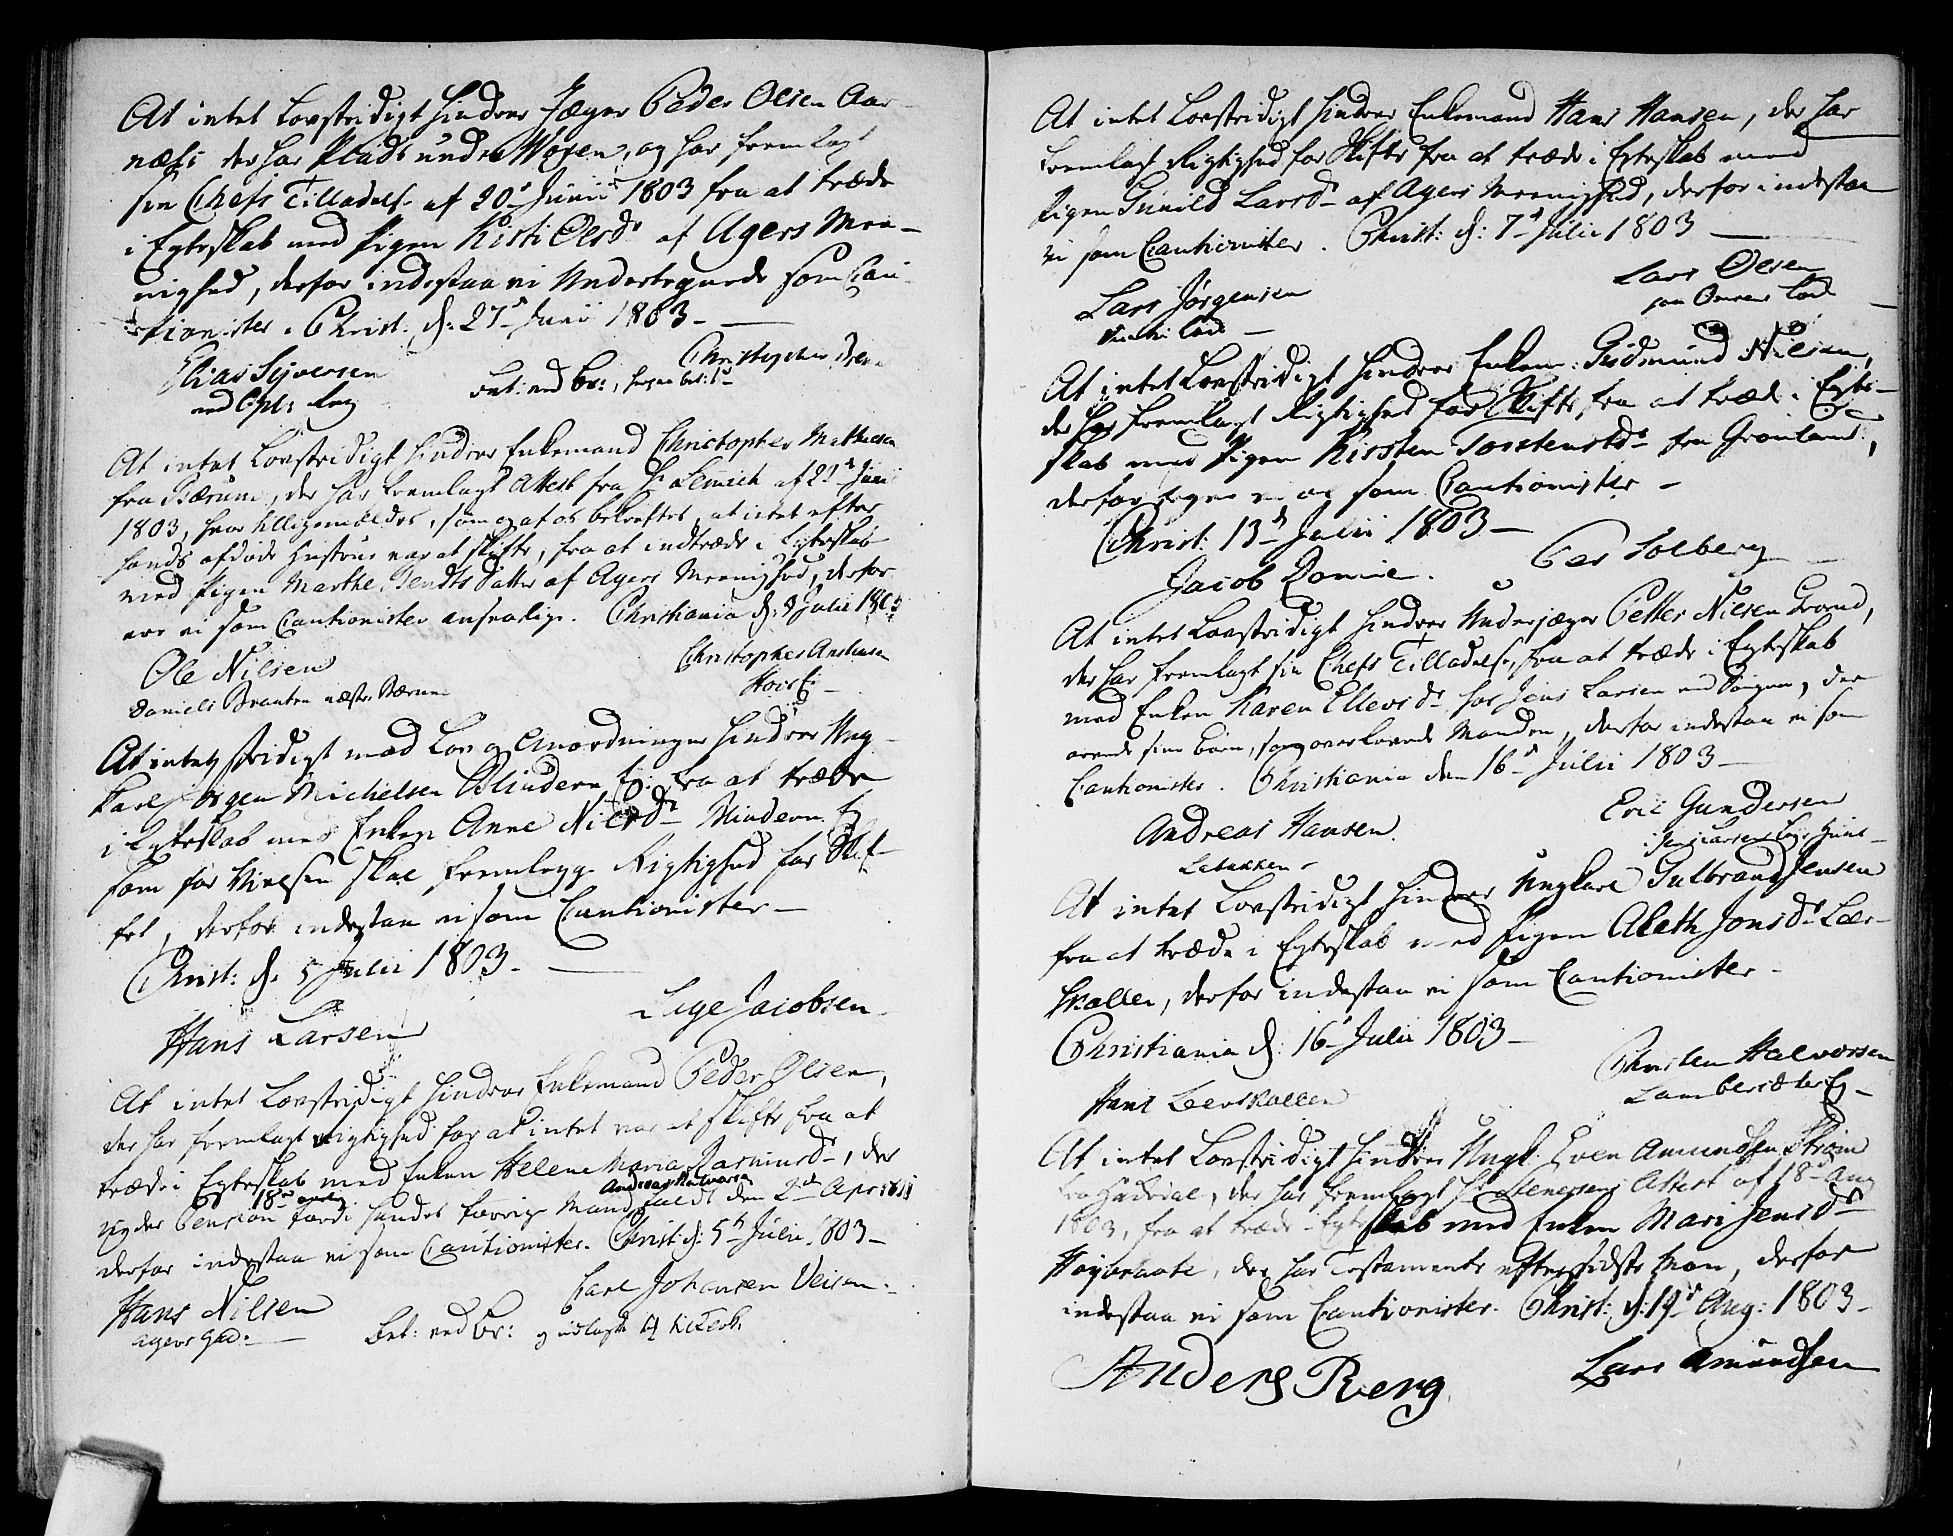 At intet Lovstridigt hindrer Jæger Peder Olsen Aar-
næss der har Plads under Woxen, og har fremlagt
sin Chefs Tilladelse af 20de Junii 1803 fra at træde
i Egteskab med Pigen Kisti Olsdr af Agers Mee-
nighed, derfor indestaa vi Undertegnede som Cau-
tionister. Christ: d: 27de Junii 1803.
Elias Syversen Christopher
ved
Bet: ved Br:
At intet Lovstridigt hindrer Enkemand Christopher Mathiesen
fra Bærum, der har fremlagt Attest fra Hr Lemich af 22de Junii
1803, hvor tilligemeldes, som og af os bekræftes, at intet efter
hands afdøde Hustrue var at skifte, fra at indtræde i Egteskab
med Pigen Marthe Bendts Datter af Agers Meenighed, derfor
ere vi som Cautionister ansvarlige. Christiania d: Julii 1803
Ole Nilsen Christopher Andersen
Daniels Braaten næste Bærum
At intet stridigt mod Lov og Anordninger hindrer Ung-
karl Jørgen Michelsen Blindern Ej: fra at træde
i Egteskab med Enken Anne Nielsdr Blindern Ej
som før Vielsen skal fremlegge Rigtighed for Skif-
tet, derfor indestaa vi som Cautionister
Christ: d. 5 Julii 1803.
Hans Larsen Jacobsen
At intet Lovstridigt hindrer Enkemand Peder Olsen,
der har fremlagt rigtighed for at intet var at skifte fra at
træde i Egteskab med Enken Helene Maria Rasmusdr, der
Andreas Halvorsen
nyder Pension fordi hendes forrige Mand faldt den 2de April 1801
derfor indestaa vi som Cautionister. Christ: d: 5te Julii 1803
Hans Nilsen Carl Johansen
Agers
Bet: ved Br: og udlagt 4
At intet Lovstridigt hindrer Enkemand Hans Hansen, der har
fremlagt Rigtighed for Skifte fra at træde i Egteskab med
Pigen Gunild Larsdr af Agers Meenighed, derfor indestaa
vi som Cautionister. Christ: d: 7de Julii 1803
Lars Jørgensen Lars Olsen
At intet Lovstridigt hindrer Enkem: Gudmund Nilsen,
der har fremlagt Rigtighed for Skifte, fra at træde i Egte-
skab med Pigen Kirsten Torstensdr fra Grønland,
derfor vi os som Cautionister
Christ: 13de Julii 1803
Jacob Per Solberg
At intet Lovstridigt hindrer Underjæger Petter Nilsen
der har fremlagt sin Chefs Tilladelse, fra at træde i Egteskab
med Enken Karen Ellevsdr hos Jens Larsen ved, der
arvede sine Børn, som overlevede Manden, derfor indestaa vi som
Cautionister. Christiania den 16de Julii 1803
Andreas Hansen Eric Gundersen
Lebakken i Jens Larsens
At intet Lovstridigt hindrer Ungkarl Gulbrand Jensen
fra at træde i Egteskab med Pigen Aleth Jonsdr Leer-
skallen, derfor indestaa vi som Cautionister
Christiania d: 16de Julii 1803
Hans Leerskallen Christen Halvorsen
Lambersæter Ej
At intet Lovstridigt hindrer Ungk: Even Amundsen Strøm
fra, der har fremlagt Hr Stenersens Attest af 18de Aug
1803, fra at træde i Egteskab med Enken Mari Jensdr
Høybraate, der har Testamente efter sidste Man, derfor
indestaa vi som Cautionister. Christ: d: 19de Aug: 1803
Anders Berg Lars Amundsen